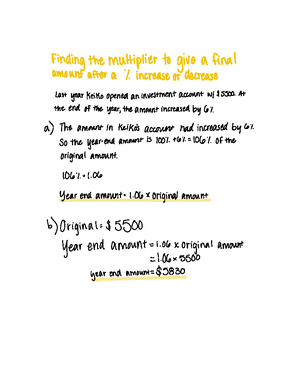 Finding the multiplier to give a final
amount after a % increase or decrease
Last year Keiko opened an investment account w/ $5500. At
the end of the year, the amount increased by 6%.
a) The amount in Keiko's account had increased by 6%.
So the year-end amount is 100% + 6% = 106% of the
original amount.
106% = 1.06
Year end amount = 1.06 × original amount
b) Original = $5500
Year end amount = 1.06 × original amount
= 1.06 × 5500
year end amount = $5830